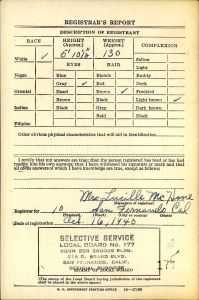 REGISTRAR'S REPORT
DESCRIPTION OF REGISTRANT
RACE HEIGHT (Approx.) WEIGHT (Approx.) COMPLEXION
5' 10½" 130
White ✓ Sallow
EYES HAIR Light
Negro Blue Blonde Ruddy
Gray ✓ Red Dark
Oriental Hazel Brown ✓ Freckled
Brown Black Light brown ✓
Indian Black Gray Dark brown
Bald Black
Filipino
Other obvious physical characteristics that will aid in identification
I certify that my answers are true; that the person registered has read or has had
read to him his own answers; that I have witnessed his signature or mark and that
all of his answers of which I have knowledge are true, except as follows:
Mrs. Lucille
(Signature of registrar)
Registrar for 10 San Fernando Cal
(Precinct) (Ward) (City or county) (State)
Date of registration Oct. 16, 1940
SELECTIVE SERVICE
LOCAL BOARD No. 177
ROOM 202 BROOKS BLDG.
BRAND BLVD.
SAN FERNANDO, CALIF.
(STAMP OF LOCAL BOARD)
(The stamp of the Local Board having jurisdiction of the registrant
shall be placed in the above space.)
U. S. GOVERNMENT PRINTING OFFICE 16-17105